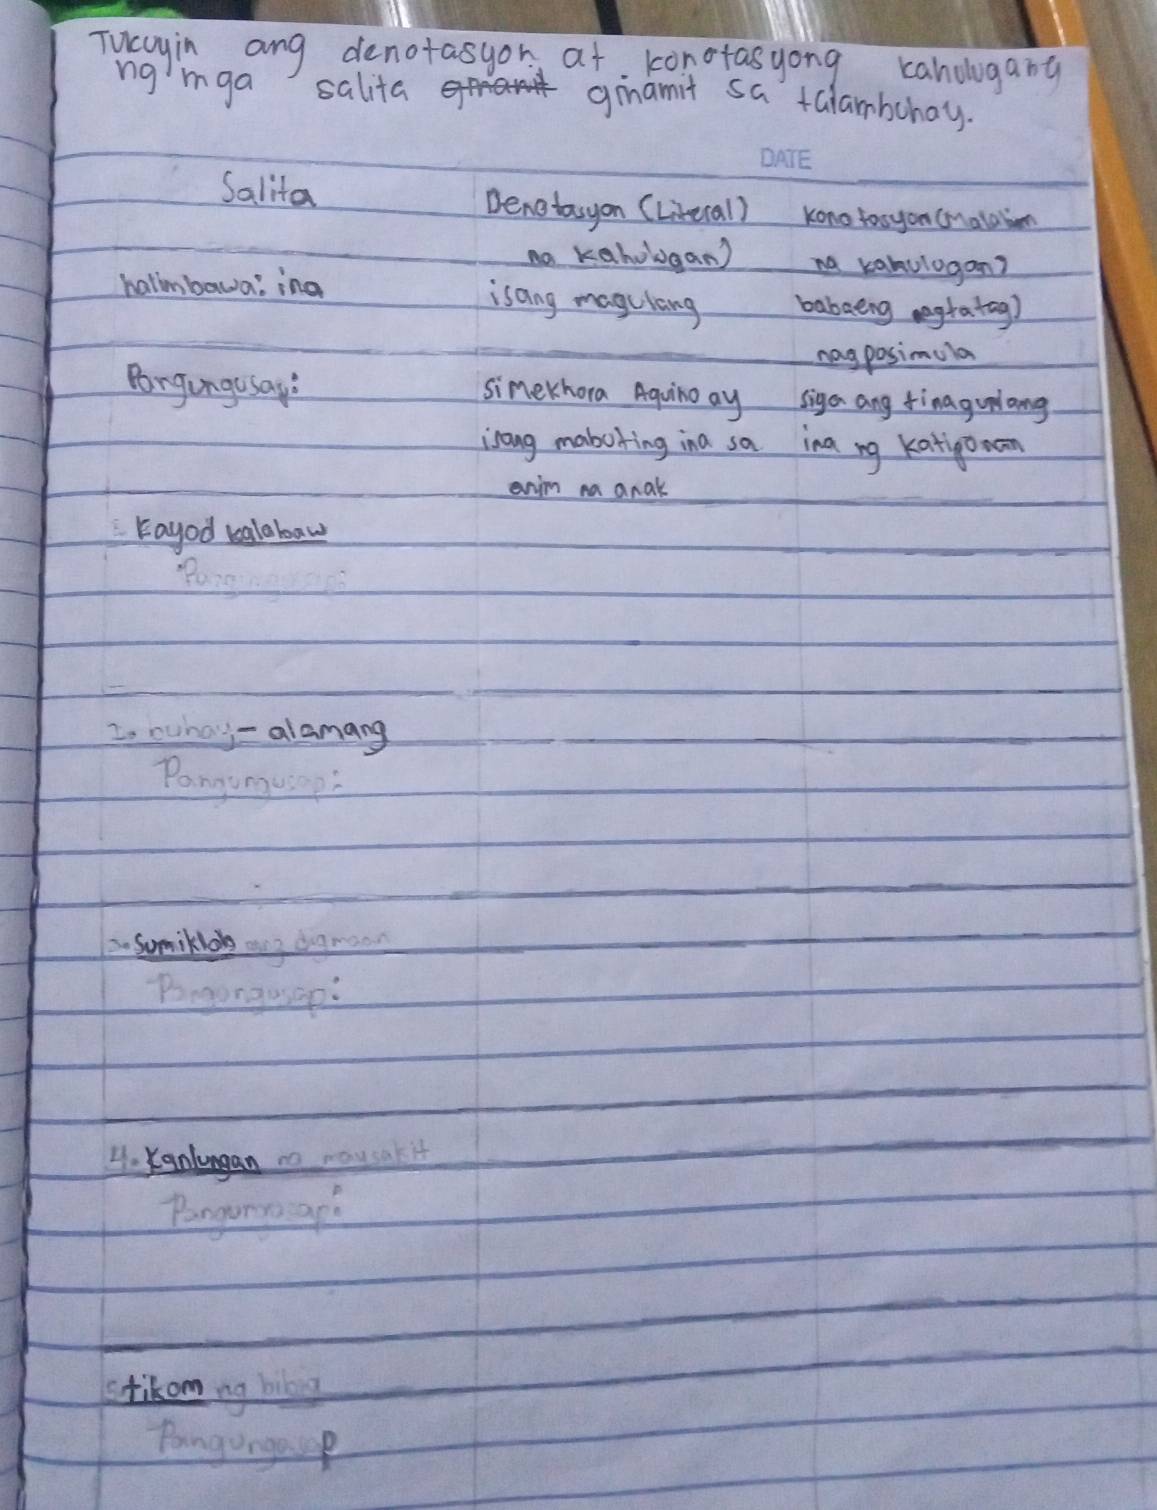 Tukuyin ang denotasyon at konotasyong kahulugang
ng mga salita ginamit sa talambuhay.
DATE
Salita Denotasyon (Literal) konotasyon (malalim
na kahulugan) na kahulugan)
halimbawa: ina isang magulang babaeng nagtatag)
nagpasimula
Pangungusap: si Melchora Aquino ay siya ang tinaguriang
isang mabuting ina sa ina ng katipunan
anim na anak
kayod kalabaw
Pangungusap:
2. buhay - alamang
Pangungusap:
3. Sumiklab ang digmaan
Pangungusap:
4. Kanlungan ng maysakit
Pangungusap:
5 tikom ng bibig
Pangungusap